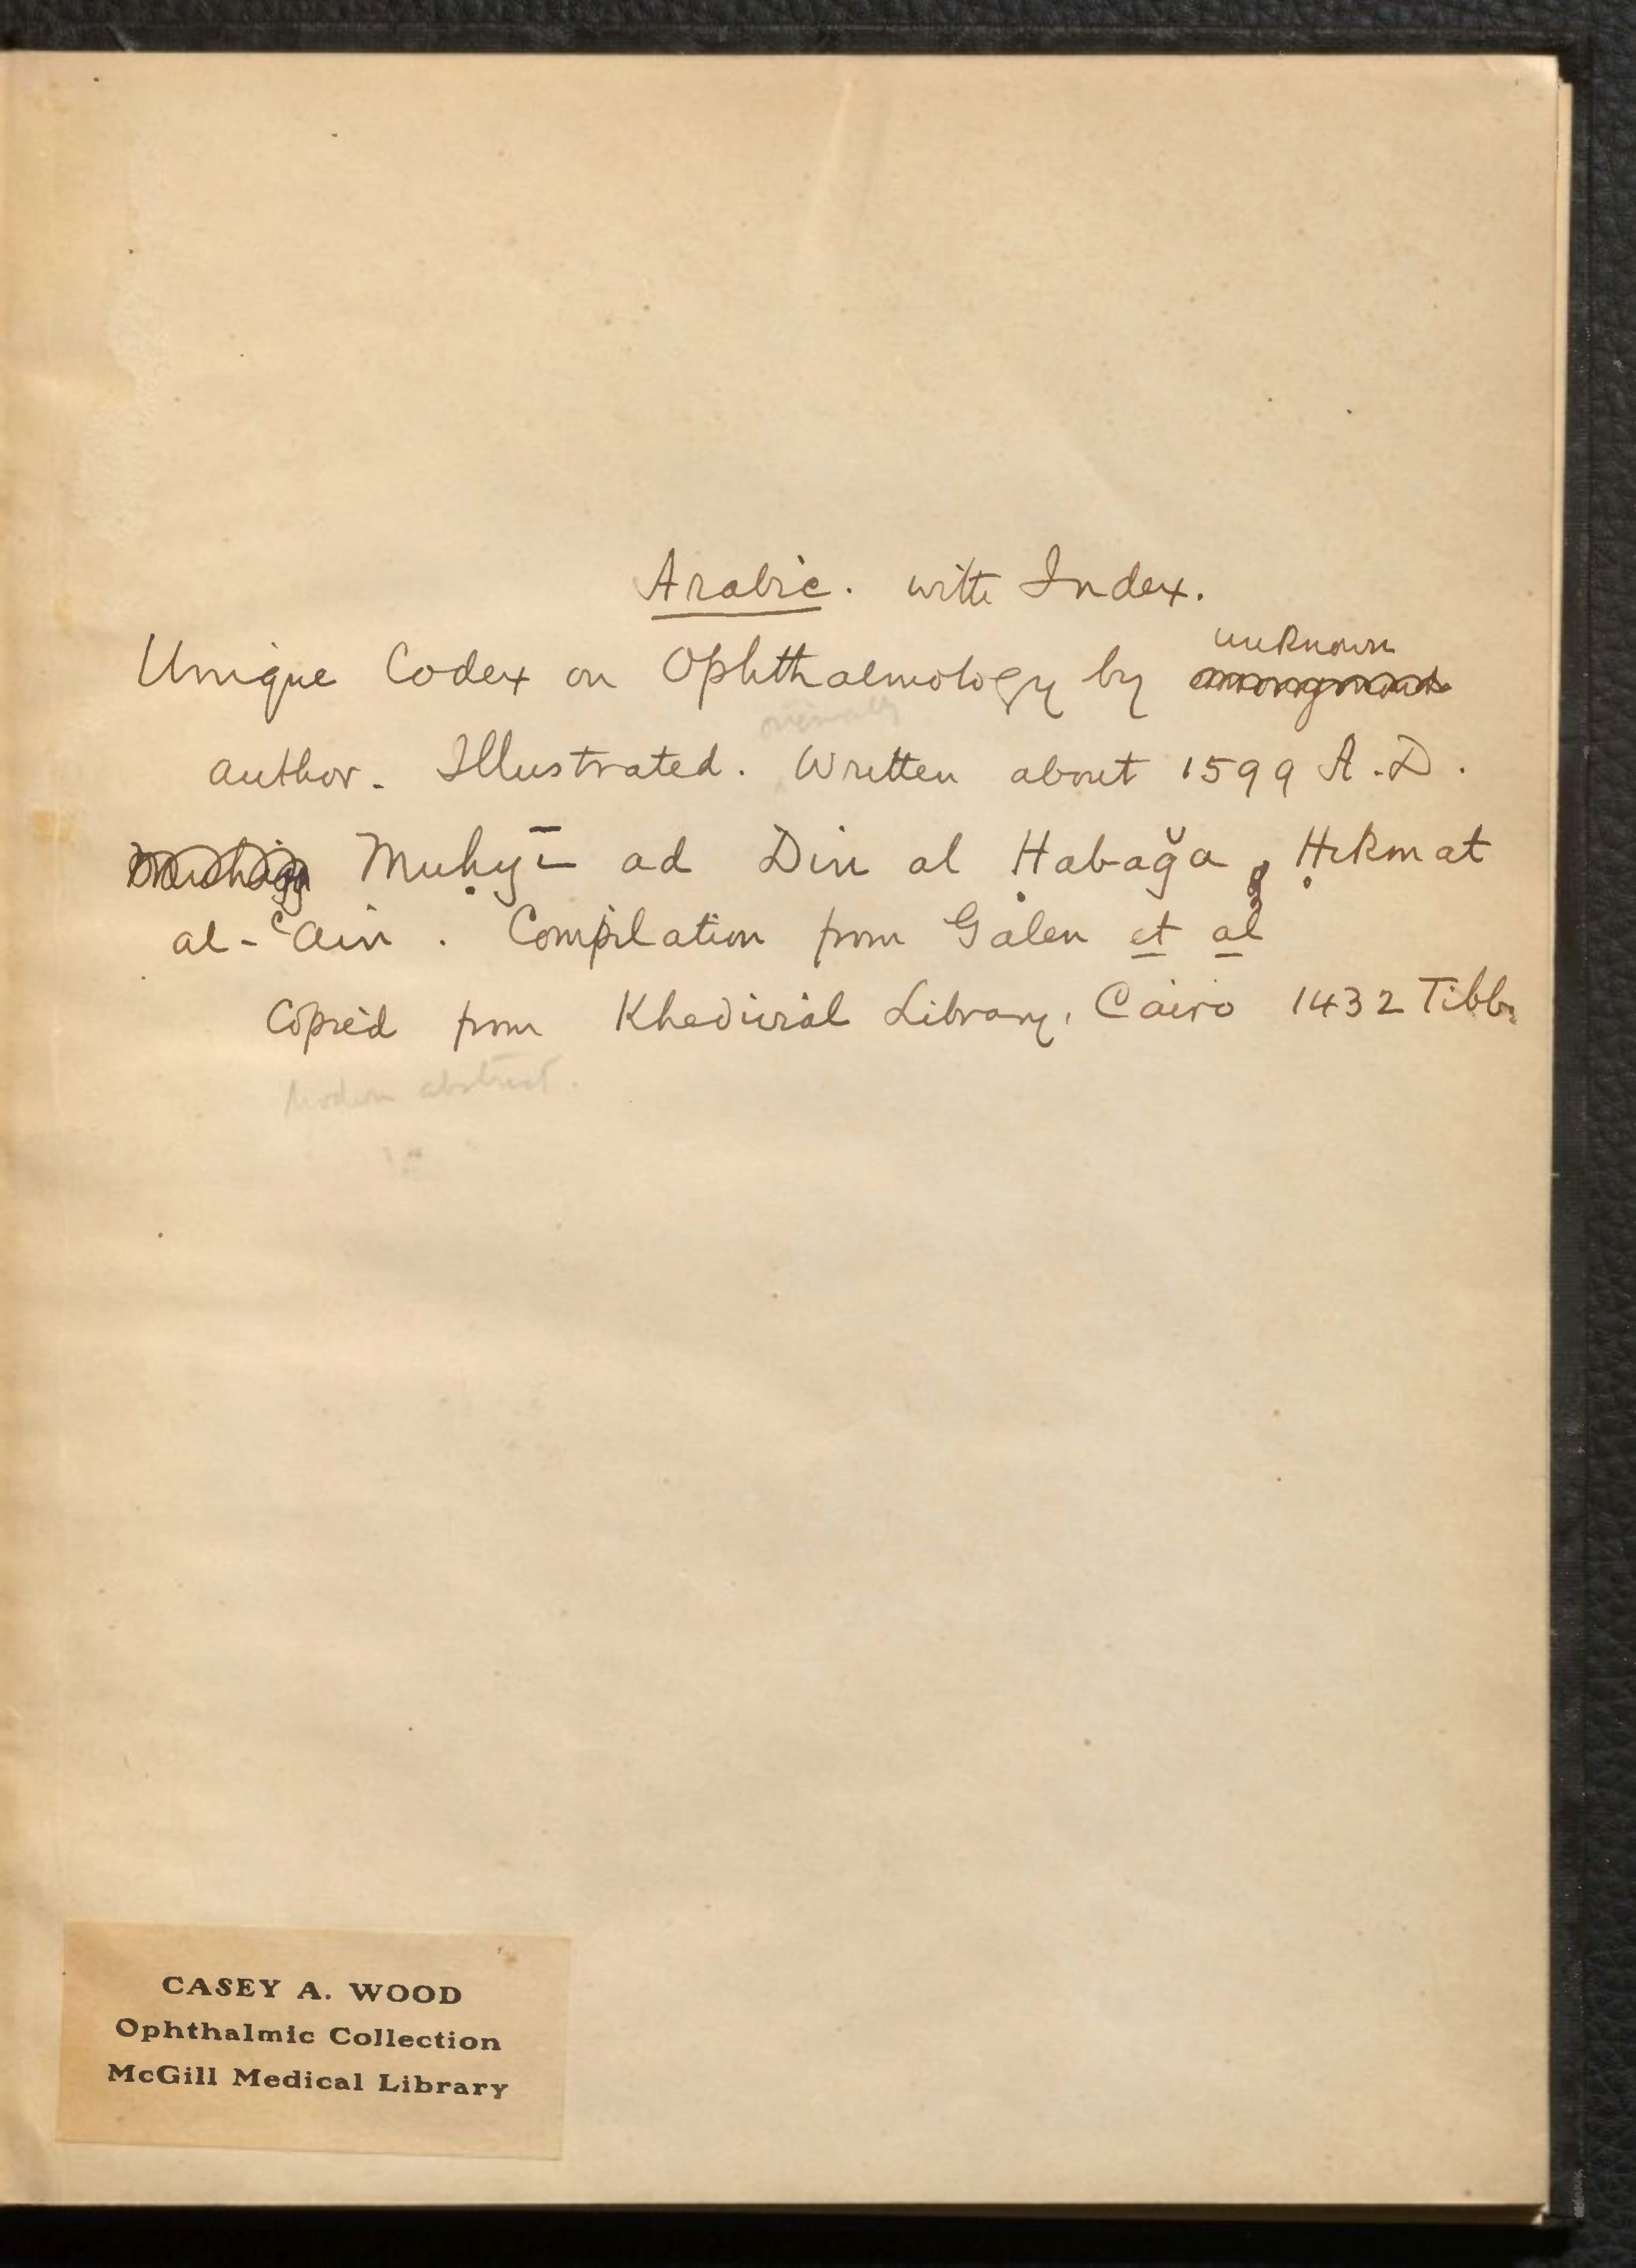 Arabic. with Index.
unknown
Unique Codex on Ophthalmology by
originally
author. Illustrated. Written about 1599 A.D.
Muḥyī ad Din al Ḥabağa, Ḥikmat
al-ʿAin. Compilation from Galen et al
Copied from Khedivial Library, Cairo 1432 Tibb.
Modern abstract.
CASEY A. WOOD
Ophthalmic Collection
McGill Medical Library